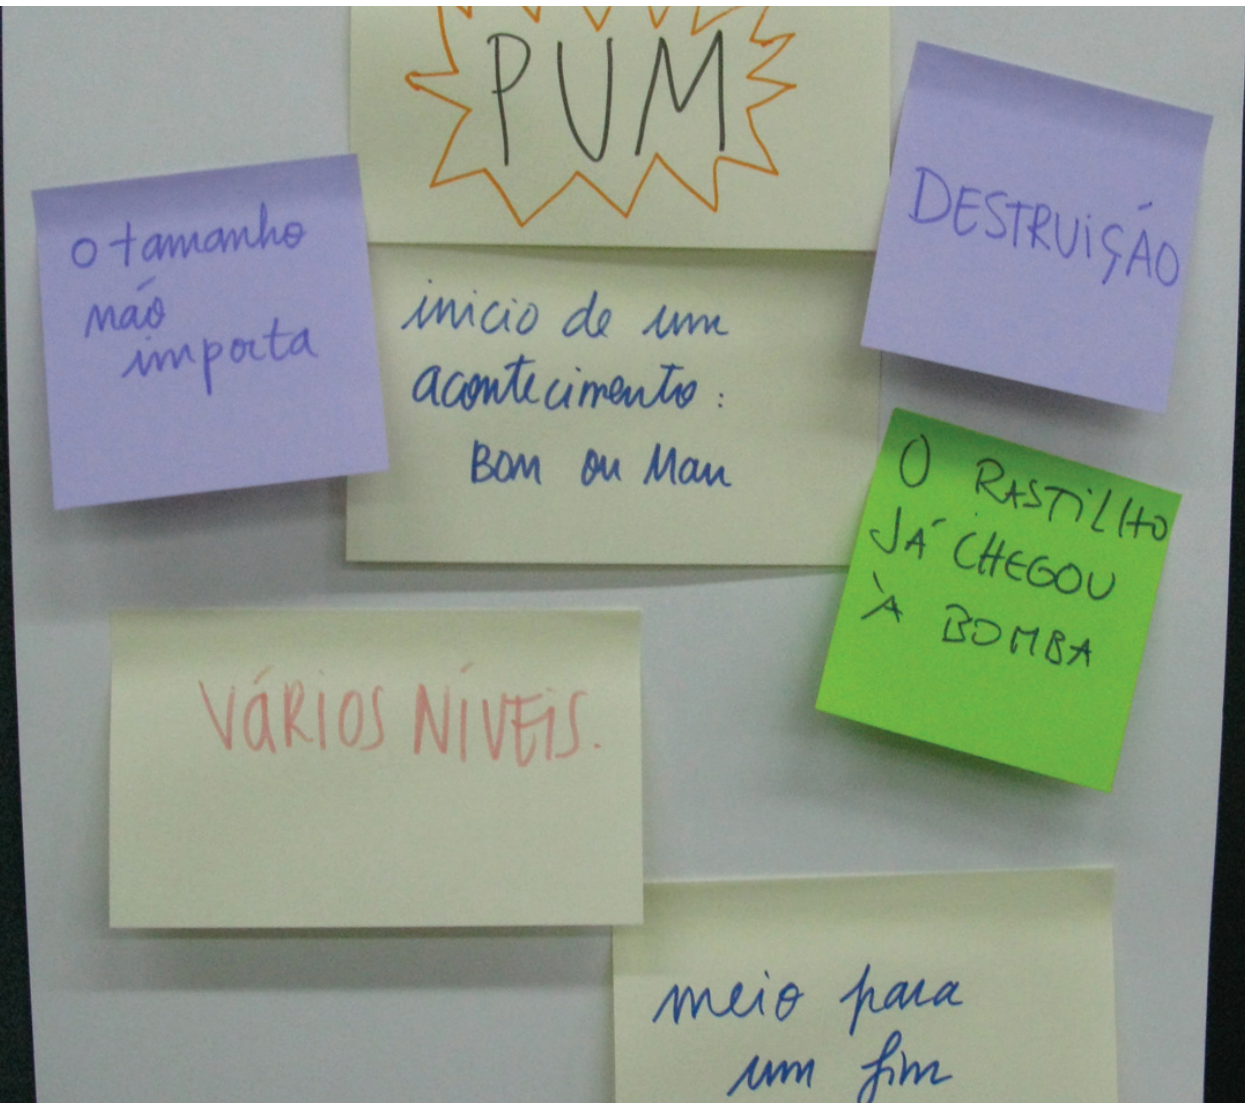 PUM
o tamanho
não
importa
DESTRUIÇÃO
inicio de um
acontecimento:
Bom ou Mau
O RASTILHO
JÁ CHEGOU
À BOMBA
VÁRIOS NÍVEIS.
meio para
um fim